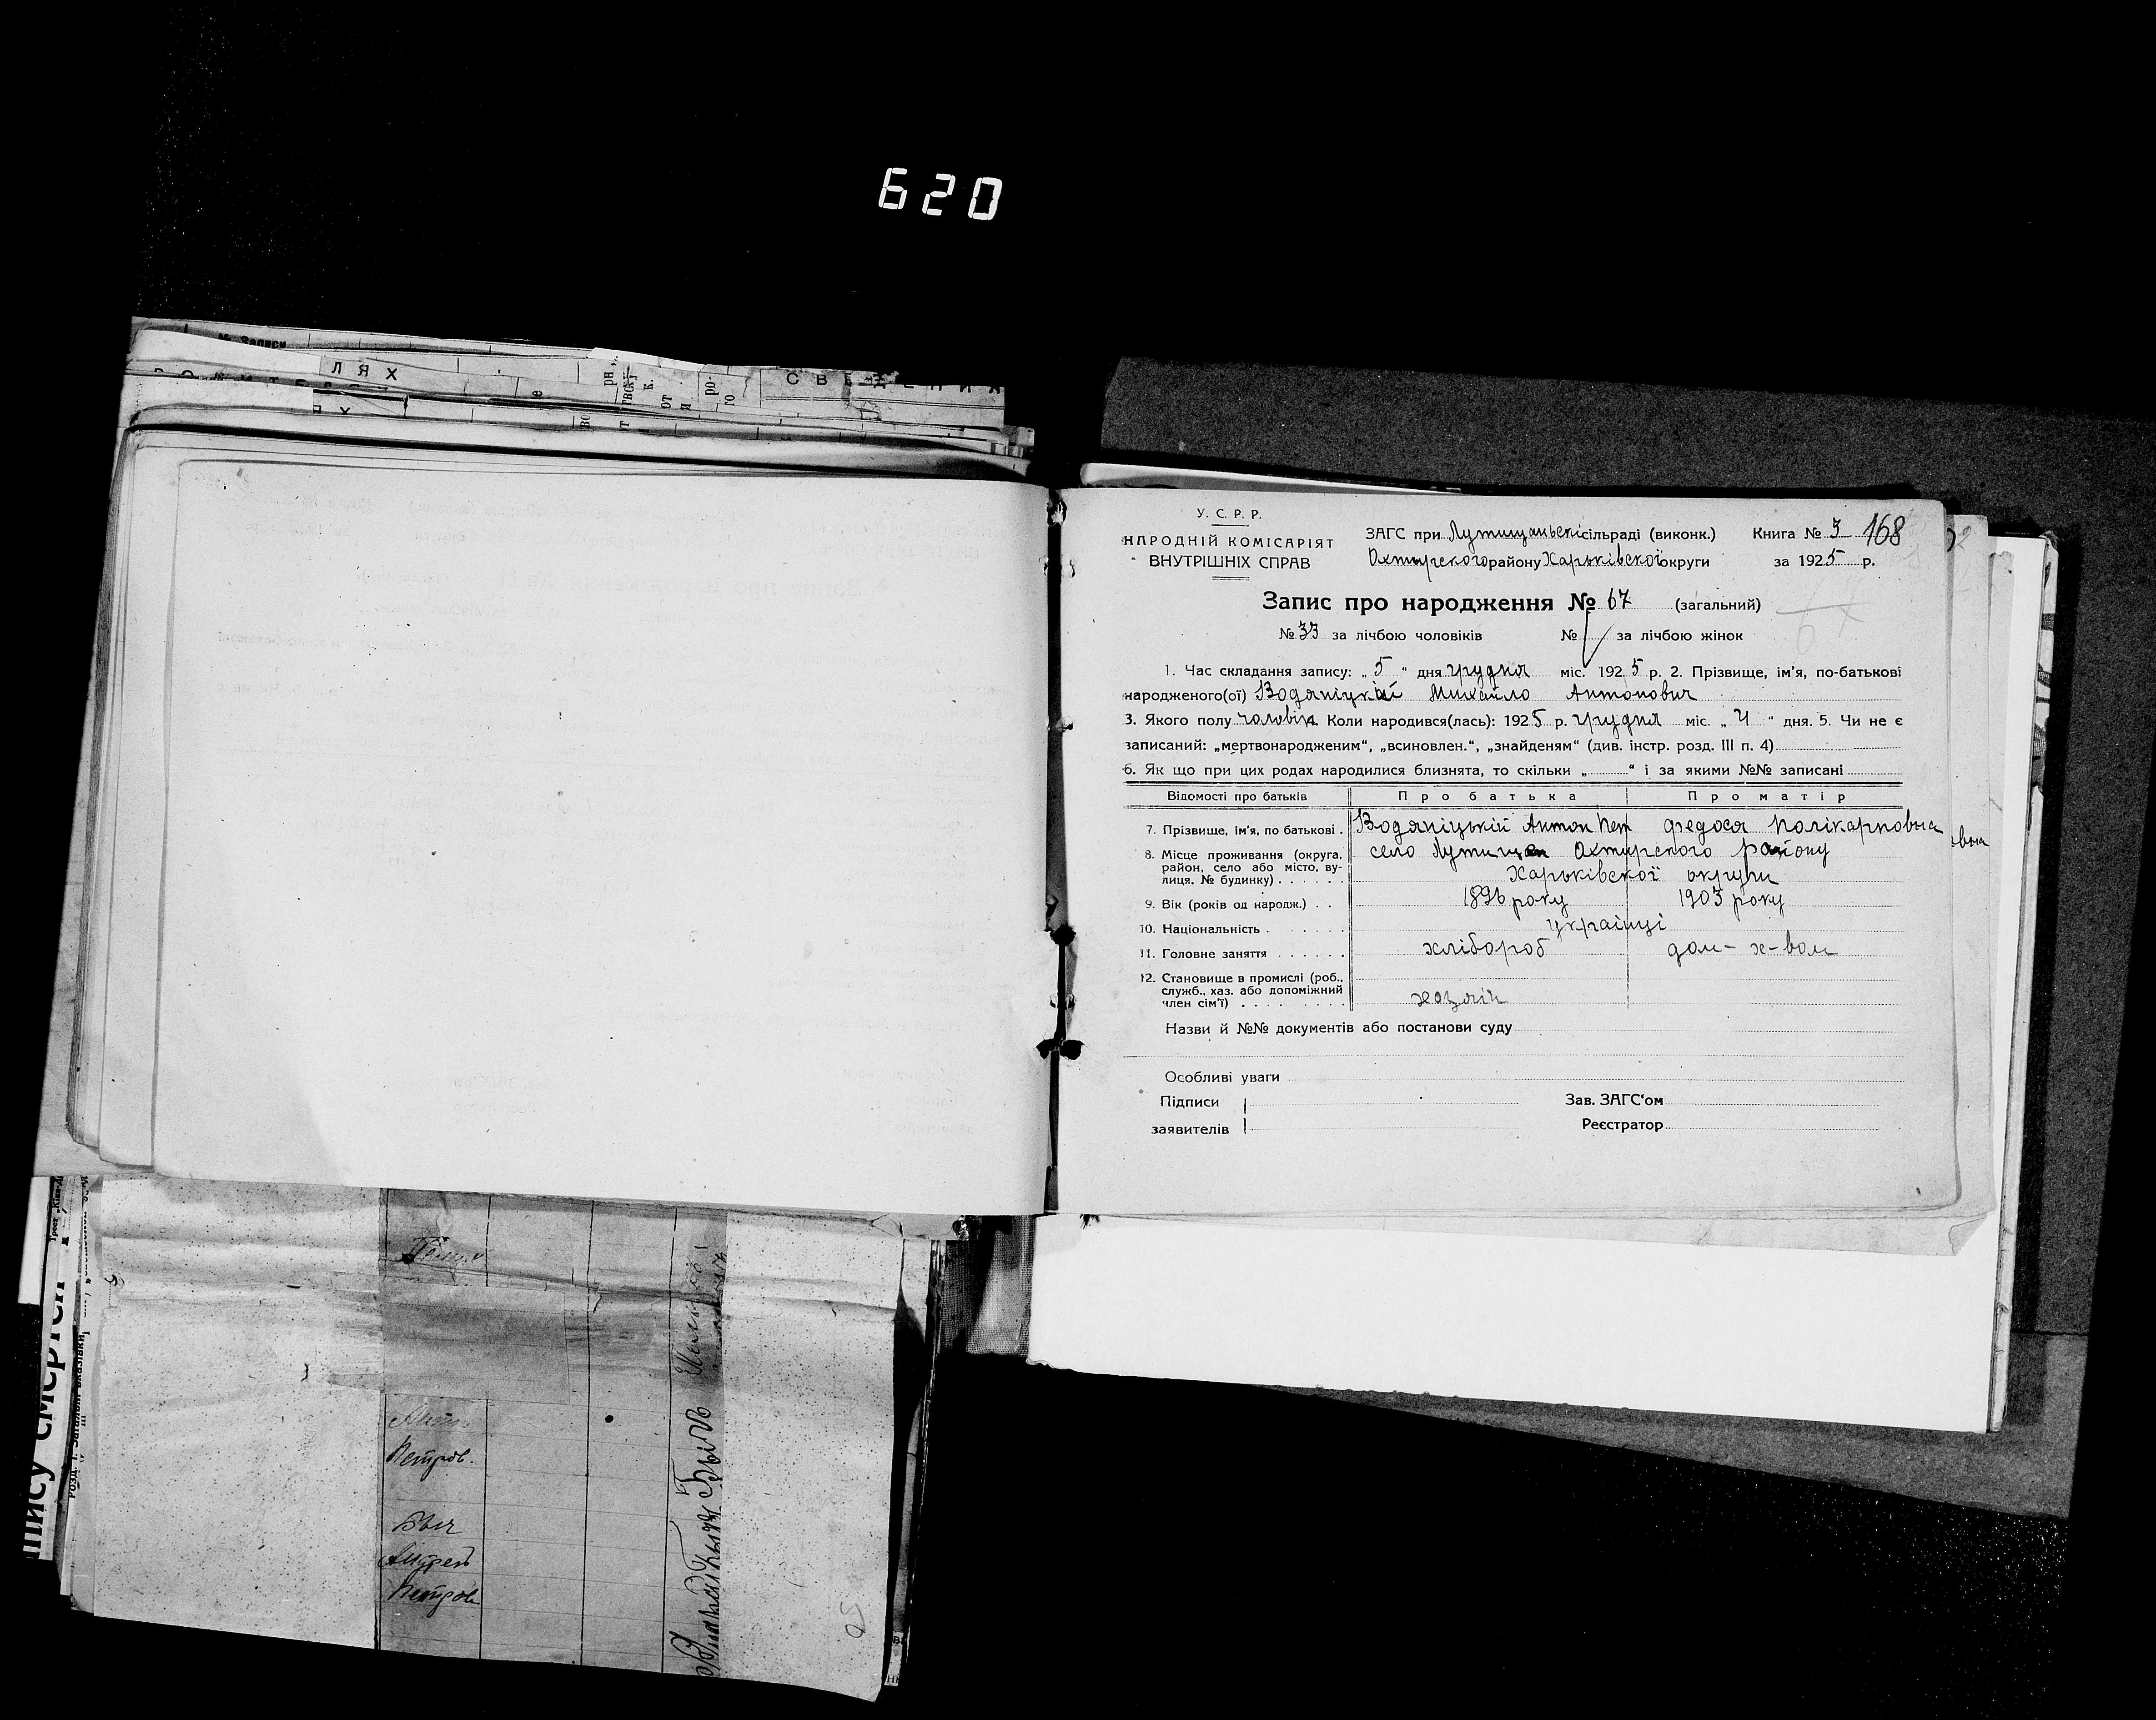 620
№ Записи
ЛЯХ
У. С. Р. Р.
НАРОДНІЙ КОМІСАРІЯТ
ВНУТРІШНІХ СПРАВ
ЗАГС при Лутищаньскі сільраді (виконк.) Книга № 3 168
Охтирского району Харьківскої округи за 1925 р.
Запис про народження № 67 (загальний)
№ 33 за лічбою чоловіків № за лічбою жінок
1. Час складання запису: „ 5 “ дня грудня міс. 1925 р. 2. Прізвище, ім'я, по-батькові
народженого(ої) Водяніцкій Михайло Антонович
3. Якого полу чоловік Коли народився(лась): 1925 р. грудня міс. „ 4 “ дня. 5. Чи не є
записаний: „мертвонародженим“, „всиновлен.“, „знайденям“ (див. інстр. розд. III п. 4)
6. Як що при цих родах народилися близнята, то скільки „ “ і за якими №№ записані
Відомості про батьків Про батька Про матір
7. Прізвище, ім'я, по батькові . Водяніцькій Антон Пет Федося Полікарповна
8. Місце проживання (округа, район, село або місто, вулиця, № будинку) . . . . . . село Лутищи Охтирского району
Харьківскої округи
9. Вік (років од народж.) . . 1896 року 1903 року
10. Національність . . . . . . українці
11. Головне заняття . . . . . . хлібороб дом-х-вом
12. Становище в промислі (роб., служб., хаз. або допоміжний член сім'ї) . . . . . . . . хазяїн
Назви й №№ документів або постанови суду
Особливі уваги
Підписи Зав. ЗАГС'ом
заявителів Реєстратор
Петров.
Андрей
Петров
50